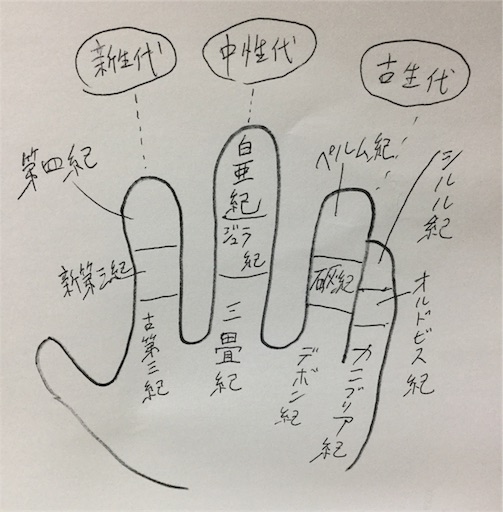 新生代
中性代
古生代
第四紀
新第三紀
古第三紀
白亜紀
ジュラ紀
三畳紀
ペルム紀
石炭紀
デボン紀
シルル紀
オルドビス紀
カンブリア紀